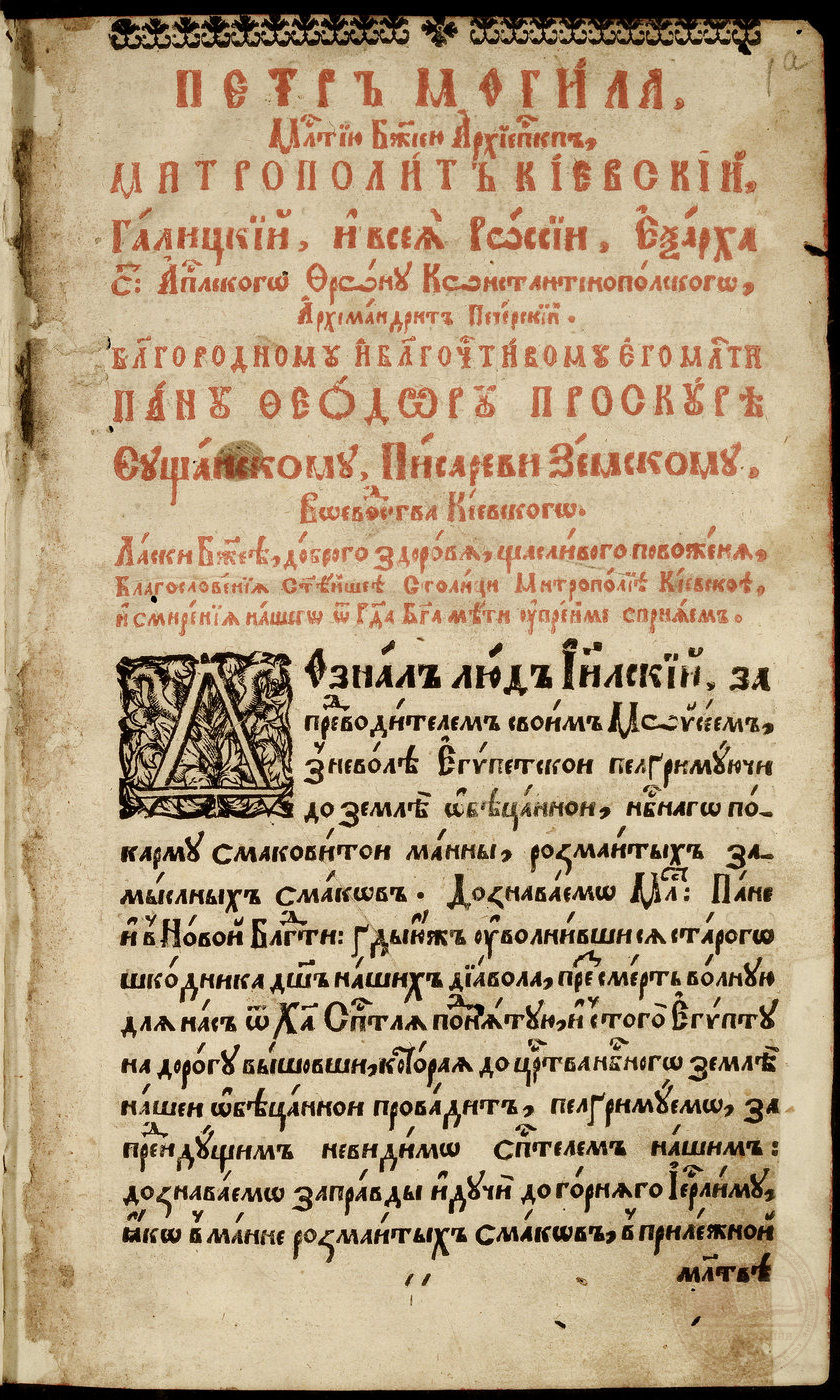 1а
ПЕТРЪ МОГИ́ЛА,
Млⷭ҇тїю Бж҃ею А҆рхїепⷭ҇кпъ,
МИТРОПОЛИ́ТЪ КІ́ЕВСКІЙ,
Га́лицкїй, и҆ всеѧ̀ Рѡ́ссїи, Еѯа́рха
С: А҆пⷭ҇лскогѡ Ѳро́нꙋ Кѡнстантїнопо́лскогѡ,
А҆рхїма́ндритъ Пече́рскїй.
БЛАГОРОДНОМУ И҆ БЛАГОЧⷭ҇ТИ́ВОМУ Е҆ГО МЛⷭ҇ТИ
ПА́НУ ѲЕО́ДѠРУ ПРОСКУ́РѢ
Сꙋща́нскому, Пи́сареви Зе́мскому,
Воевѡⷣства Кі́евскогѡ.
Ла́ски Бж҃еѣ, до́брого здоро́вѧ, щасли́вого повоже́нѧ,
Благослове́нїѧ Ст҃ѣ́йшеѣ Столи́ци Митропо́лїѣ Кі́евскоѣ,
и҆ смире́нїѧ на́шегѡ ѿ Гдⷭ҇а Бг҃а мѣ́ти оу҆пре́йме сприѧ́емъ.
ДОзна́лъ лю́дъ І҆и҃лскїй, за
преⷣводи́телемъ свои́мъ Мѡѷсе́емъ,
з̾ нево́лѣ Е҆гѵ́петскои пелґримꙋ́ючи
до землѣ̀ ѡ҆бѣца́ннои, нбⷭ҇нагѡ по-
карму смакови́тои ма́нны, розмаи́тыхъ за-
мы́слныхъ сма́кѡвъ. Дознава́емѡ Млⷭ҇: Па́не
и҆ в̾ Но́вой Блгⷣти: ґдыⷤ оу҆волни́вшисѧ ста́рогѡ
шко́дника дш҃ъ на́шихъ дїа́вола, преⷥ сме́рть во́лнꙋю
длѧ на́съ ѿ Хⷭ҇а Спⷭ҇тлѧ поⷣнѧ́тꙋю, и҆ з̾ того̀ Е҆гѵ́птꙋ
на доро́гꙋ вы́шовши, кото́раѧ до црⷭ҇тва нбⷭ҇ногѡ землѣ̀
на́шеи ѡ҆бѣца́ннои прова́дитъ, пелґримꙋ́емѡ, за
преⷣидꙋ́щимъ неви́димѡ Спⷭ҇телемъ на́шимъ:
дознава́емѡ запра́вды и҆дꙋчѝ до го́рнѧго І҆ерⷭ҇ли́мꙋ,
ꙗ҆́кѡ в̾ ма́нне розмаи́тыхъ сма́кѡвъ, в̾ приле́жной
млт҃вѣ